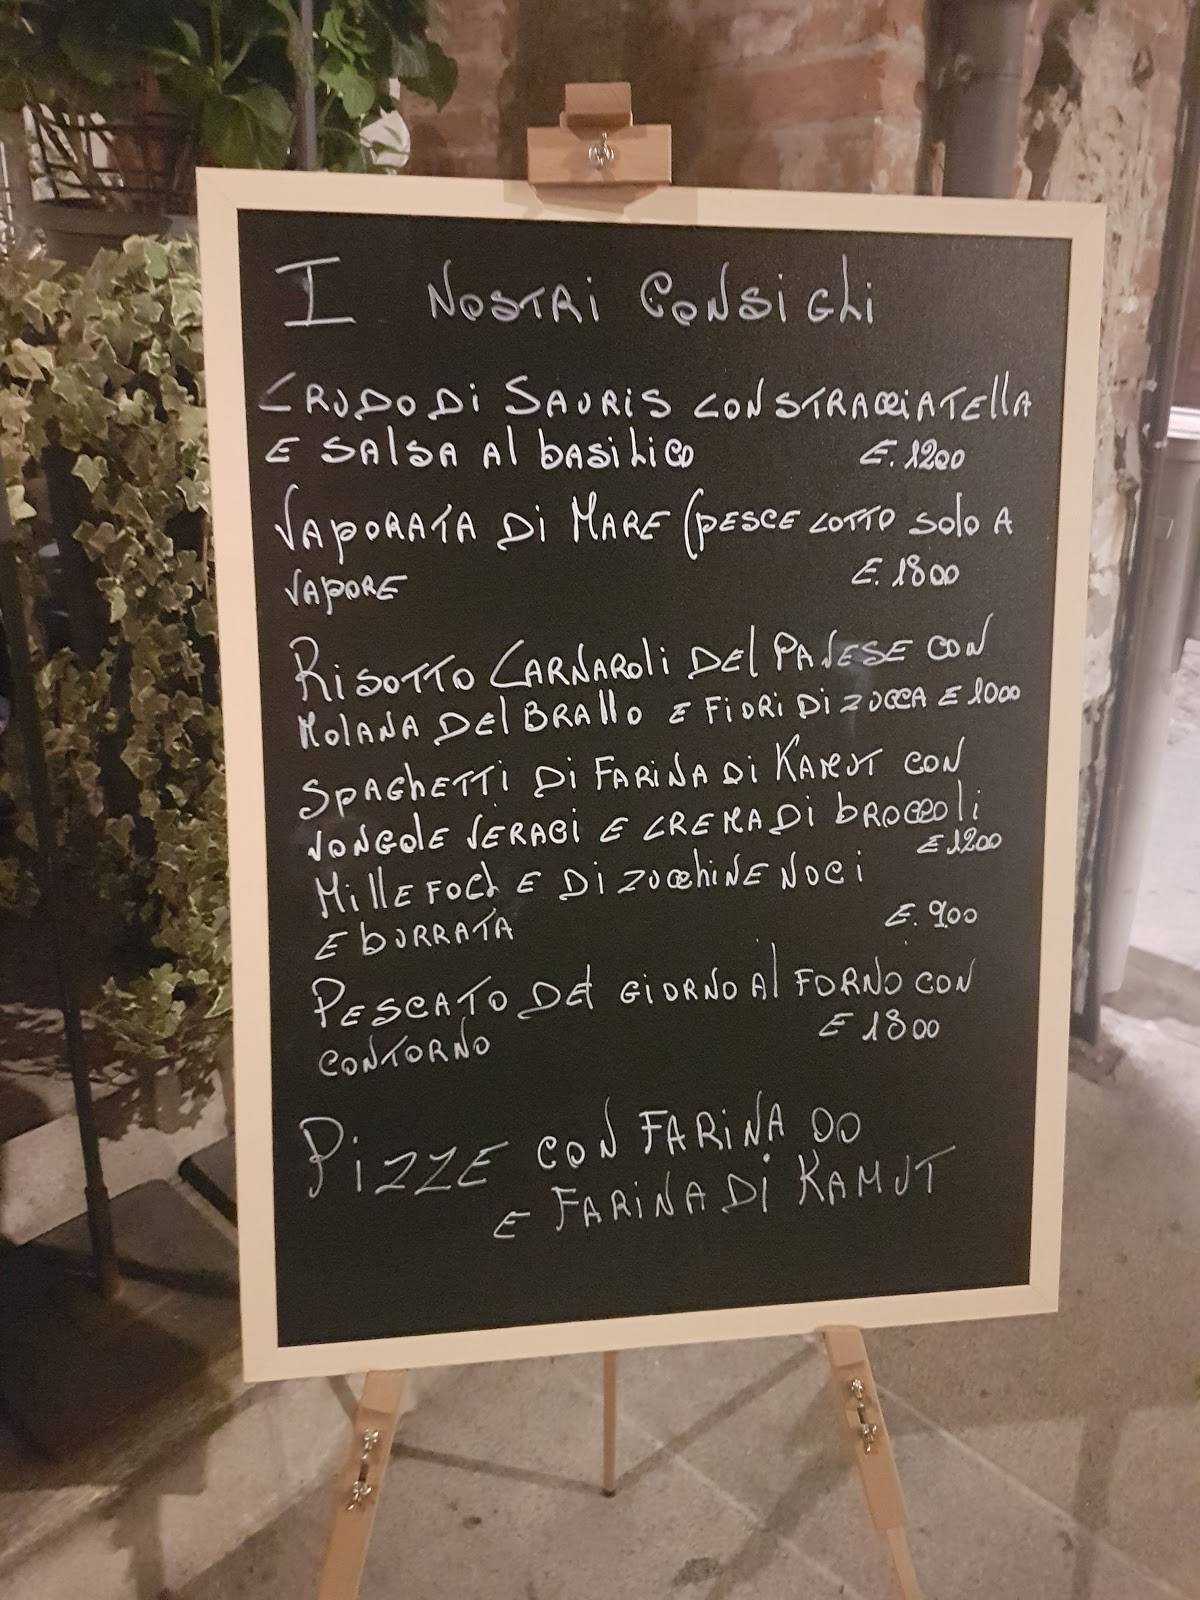 I NOSTRI CONSIGLI
CRUDO DI SAURIS CON STRACCIATELLA
E SALSA AL BASILICO E. 1200
VAPORATA DI MARE (PESCE COTTO SOLO A
VAPORE E. 1800
RISOTTO CARNAROLI DEL PAVESE CON
MOLANA DEL BRALLO E FIORI DI ZUCCA E 1000
SPAGHETTI DI FARINA DI KAMUT CON
VONGOLE VERACI E CREMA DI BROCCOLI
E 1200
MILLEFOGLIE DI ZUCCHINE NOCI
E BURRATA E. 900
PESCATO DEL GIORNO AL FORNO CON
CONTORNO E 1800
PIZZE CON FARINA 00
E FARINA DI KAMUT